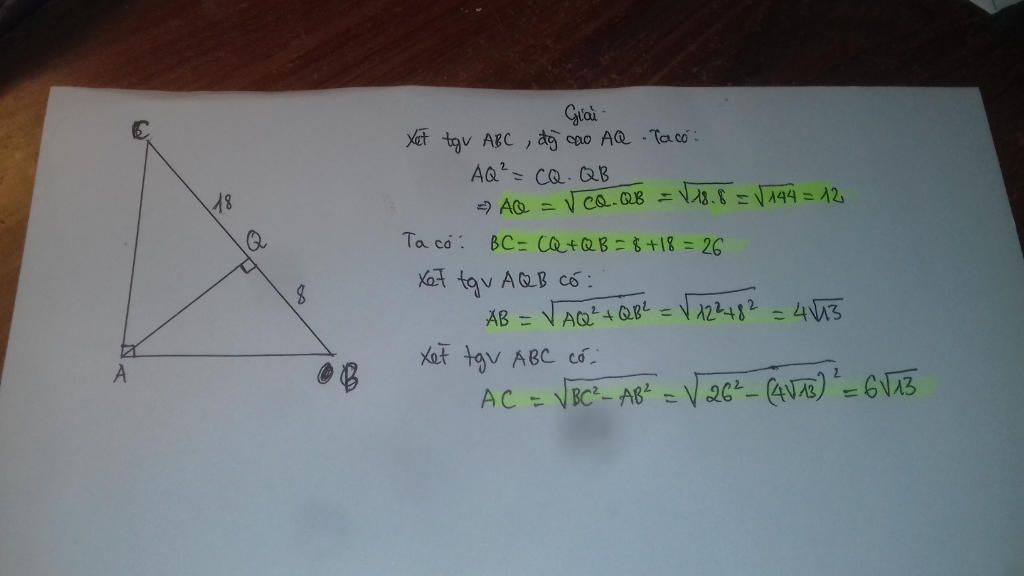 C
18
Q
8
A
B
Giải
Xét tgv ABC, đg cao AQ. Ta có:
AQ² = CQ.QB
⇒ AQ = √CQ.QB = √18.8 = √144 = 12
Ta có: BC = CQ + QB = 8 + 18 = 26
Xét tgv AQB có:
AB = √AQ² + QB² = √12² + 8² = 4√13
Xét tgv ABC có:
AC = √BC² - AB² = √26² - (4√13)² = 6√13